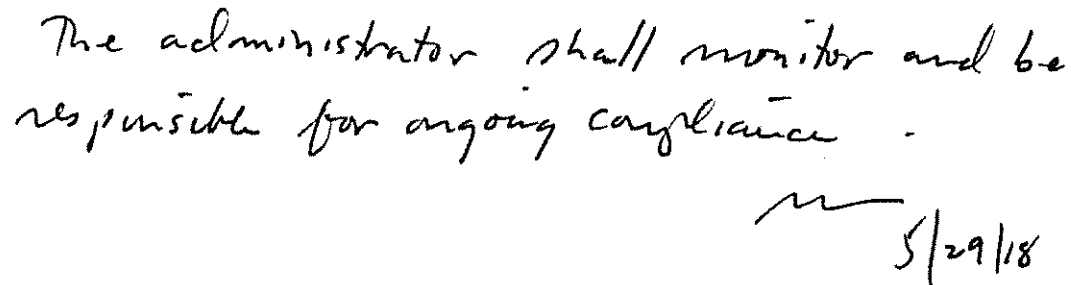 The administrator shall monitor and be
responsible for ongoing compliance.
5/29/18